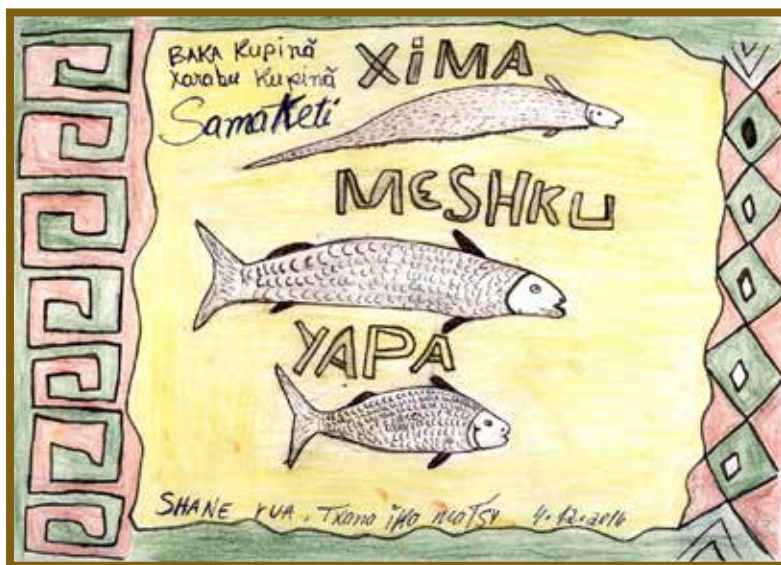 BAKA Kupinã
Xarabu Kupinã
Samaketi
XiMA
MESHKU
YAPA
SHANE YUA. Txana iKa MATSY 4.12.2016